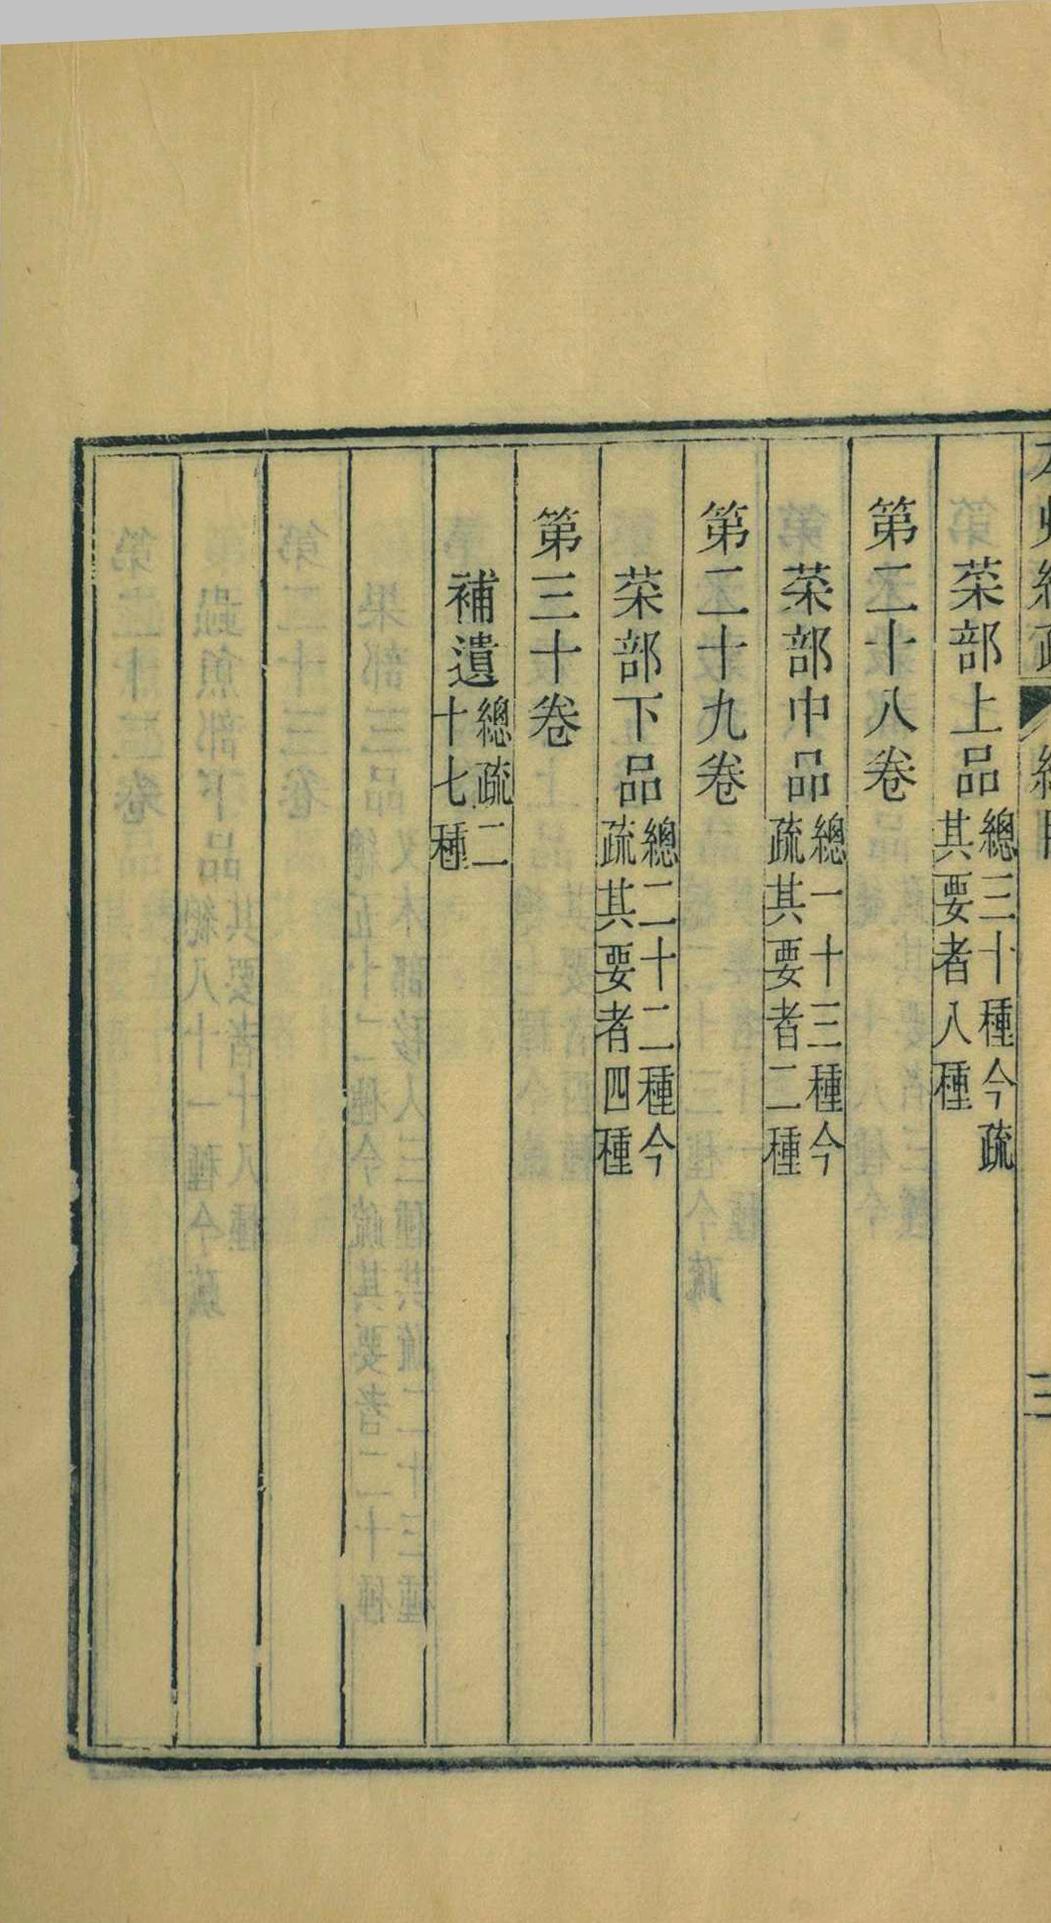 菜部上品總三十種今疏其要者八種
第二十八卷
菜部中品總一十三種今疏其要者二種
第二十九卷
菜部下品總二十二種今疏其要者四種
第三十卷
補遺總疏二十七種
三